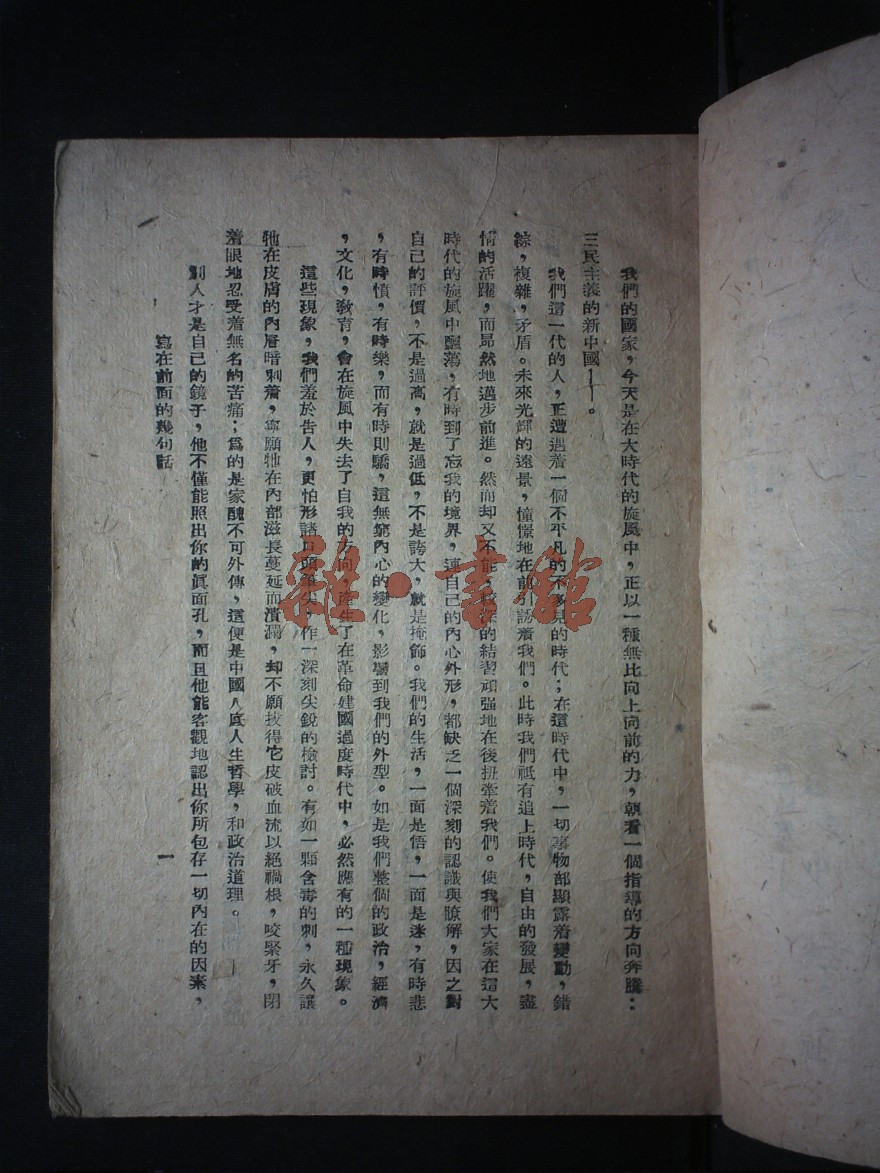 我們的國家，今天是在大時代的旋風中，正以一種無比向上向前的力，朝看一個指導的方向奔騰：
三民主義的新中國——。
我們這一代的人，正遭遇着一個不平凡的不多見的時代；在這時代中，一切事物部顯露着變動，錯
綜，複雜，矛盾。未來光輝的遠景，憧憬地在前引誘着我們。此時我們祇有追上時代，自由的發展，盡
情的活躍，而昂然地邁步前進。然而却又不能，深的結習頑强地在後扭牽着我們。使我們大家在這大
時代的旋風中飄蕩，有時到了忘我的境界，連自己的內心外形，都缺乏一個深刻的認識與瞭解，因之對
自己的評價，不是過高，就是過低，不是誇大，就是掩飾。我們的生活，一面是悟，一面是迷，有時悲
，有時憤，有時樂，而有時則驕，這無窮內心的變化，影響到我們的外型。如是我們整個的政治，經濟
，文化，敎育，會在旋風中失去了自我的方向，產生了在革命建國過度時代中，必然應有的一種現象。
這些現象，我們羞於告人，更怕形諸口頭筆尖，作一深刻尖銳的檢討。有如一顆含毒的刺，永久讓
牠在皮膚的內層暗刺着，寧願牠在內部滋長蔓延而潰瀾，却不願拔得它皮破血流以絕禍根，咬緊牙，閉
着眼地忍受着無名的苦痛；爲的是家醜不可外傳，這便是中國人底人生哲學，和政治道理。
別人才是自己的鏡子，他不僅能照出你的眞面孔，而且他能客觀地認出你所包存一切內在的因素，
寫在前面的幾句話
一
雜·書館